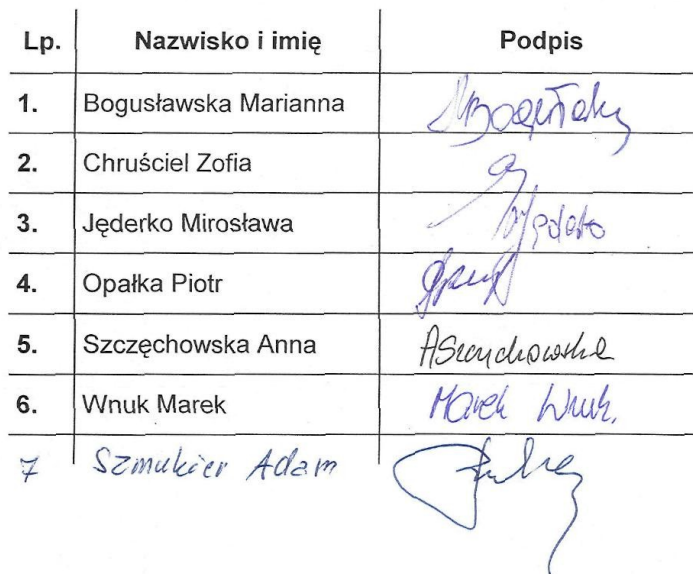 Lp. Nazwisko i imię Podpis
1. Bogusławska Marianna
2. Chruściel Zofia
3. Jęderko Mirosława
4. Opałka Piotr
5. Szczęchowska Anna ASzczęchowska
6. Wnuk Marek Marek Wnuk.
7 Szmukier Adam